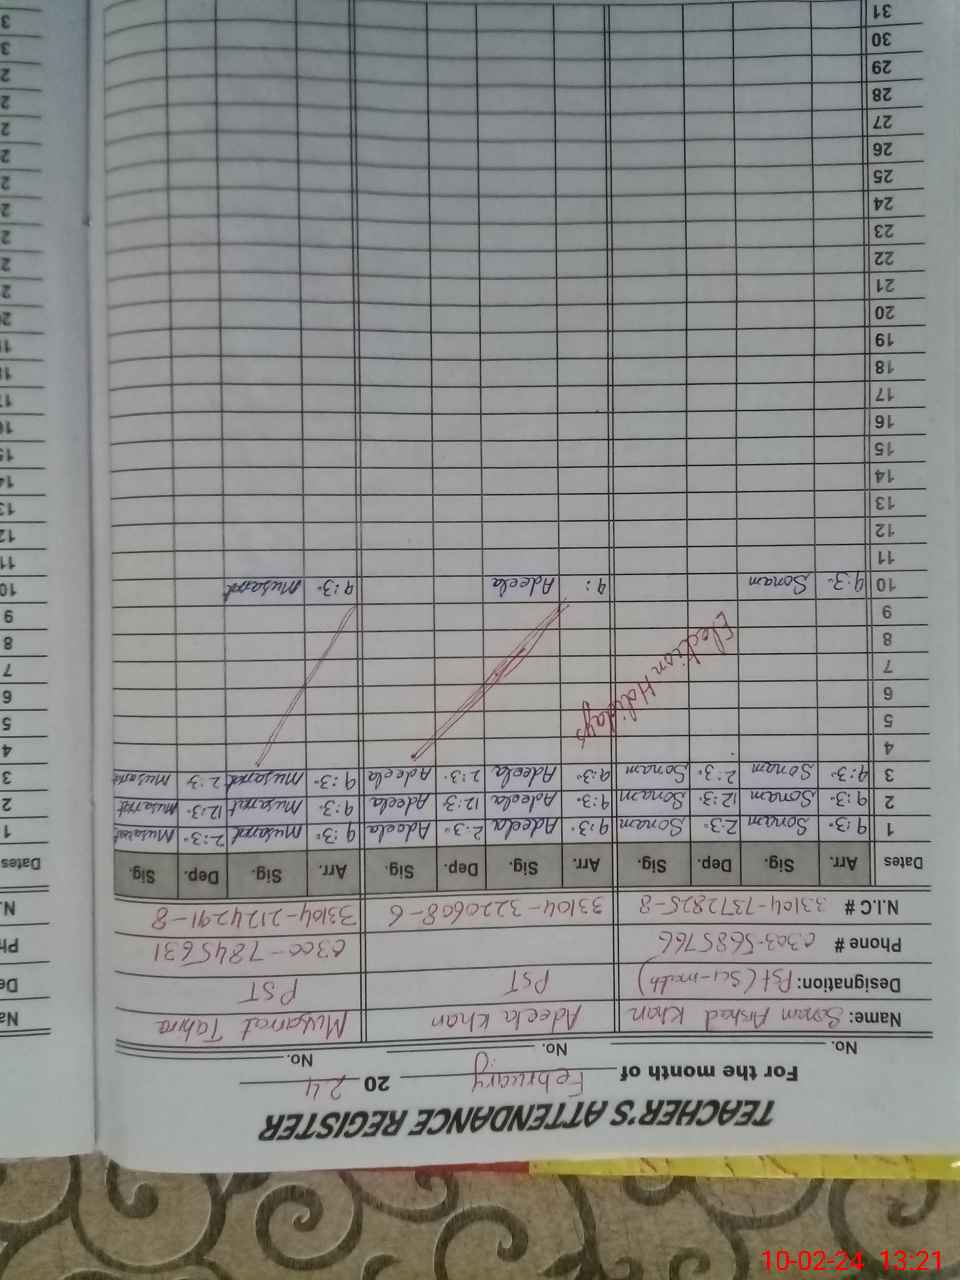 TEACHER'S ATTENDANCE REGISTER
For the month of February 2024
No. No. No.
Name: Sonam Arshad Khan Adeela Khan Musarat Tahira
Designation: Pst (Sci-math) PST PST
Phone # 0303-5685766 0300-7845631
N.I.C # 33104-7372825-8 33104-3220608-6 33104-2124291-8
Dates Arr. Sig. Dep. Sig. Arr. Sig. Dep. Sig. Arr. Sig. Dep. Sig.
1 9:3- Sonam 2:3- Sonam 9:3- Adeela 2:3- Adeela 9:3- Musarat 2:3- Musarat
2 9:3- Sonam 12:3- Sonam 9:3- Adeela 12:3 Adeela 9:3- Musarat 12:3- Musarat
3 9:3- Sonam 2:3- Sonam 9:3- Adeela 2:3- Adeela 9:3- Musarat 2:3 Musarat
4
5
6
7
8
9
Election Holidays
10 9:3- Sonam 9: Adeela 9:3- Musarat
11
12
13
14
15
16
17
18
19
20
21
22
23
24
25
26
27
28
29
30
31
Dates
1
2
3
4
5
6
7
8
9
10
11
12
13
14
10-02-24 13:21